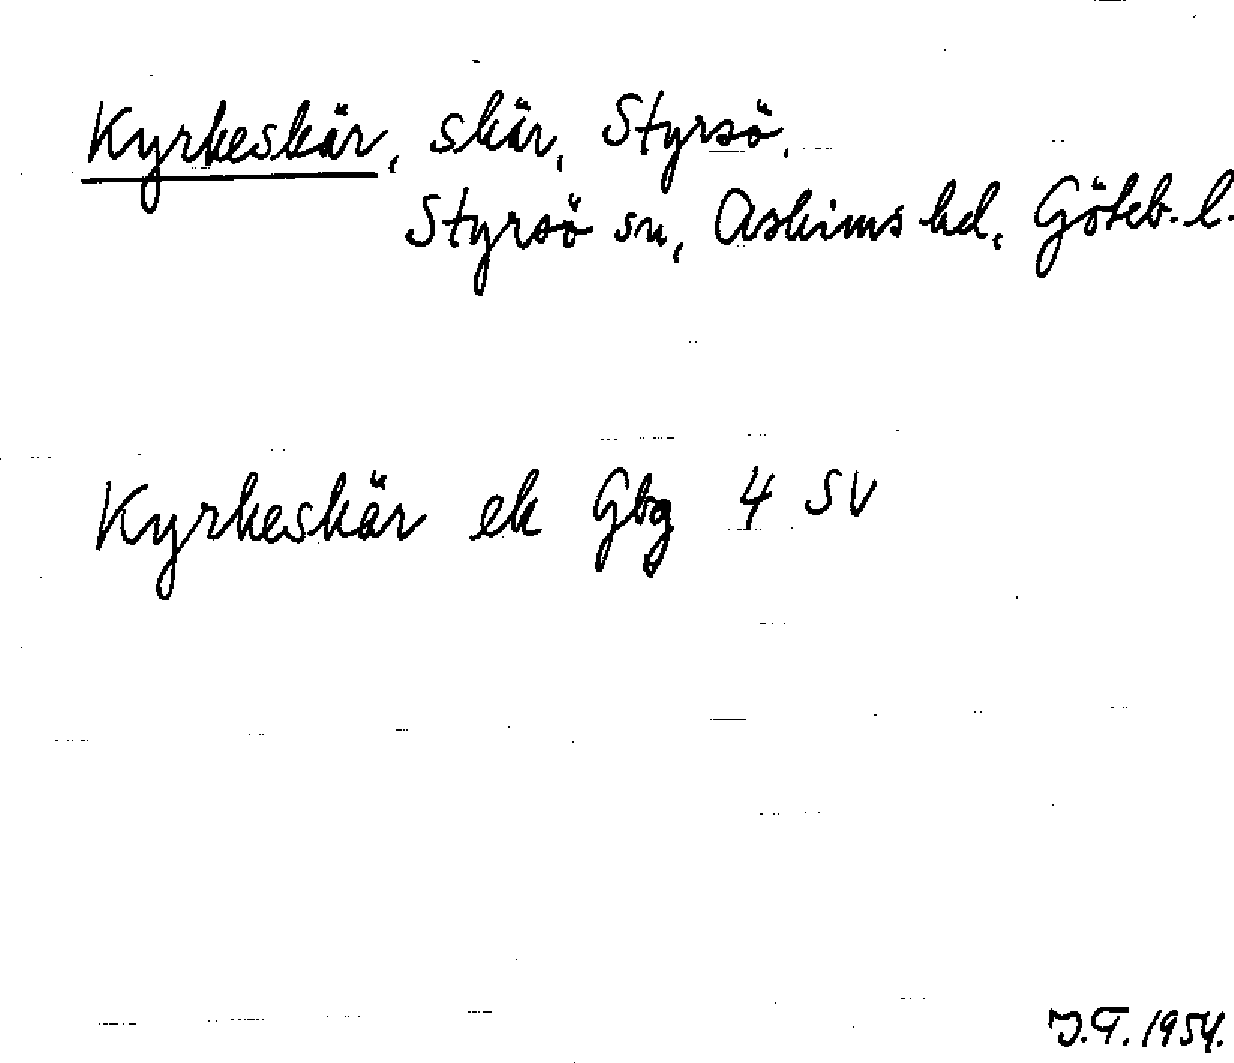 Kyrkeskär, skär, Styrsö,
Styrsö sn, Askims hd, Göteb. l.
Kyrkeskär ek Gbg 4 SV
J.T. 1954.